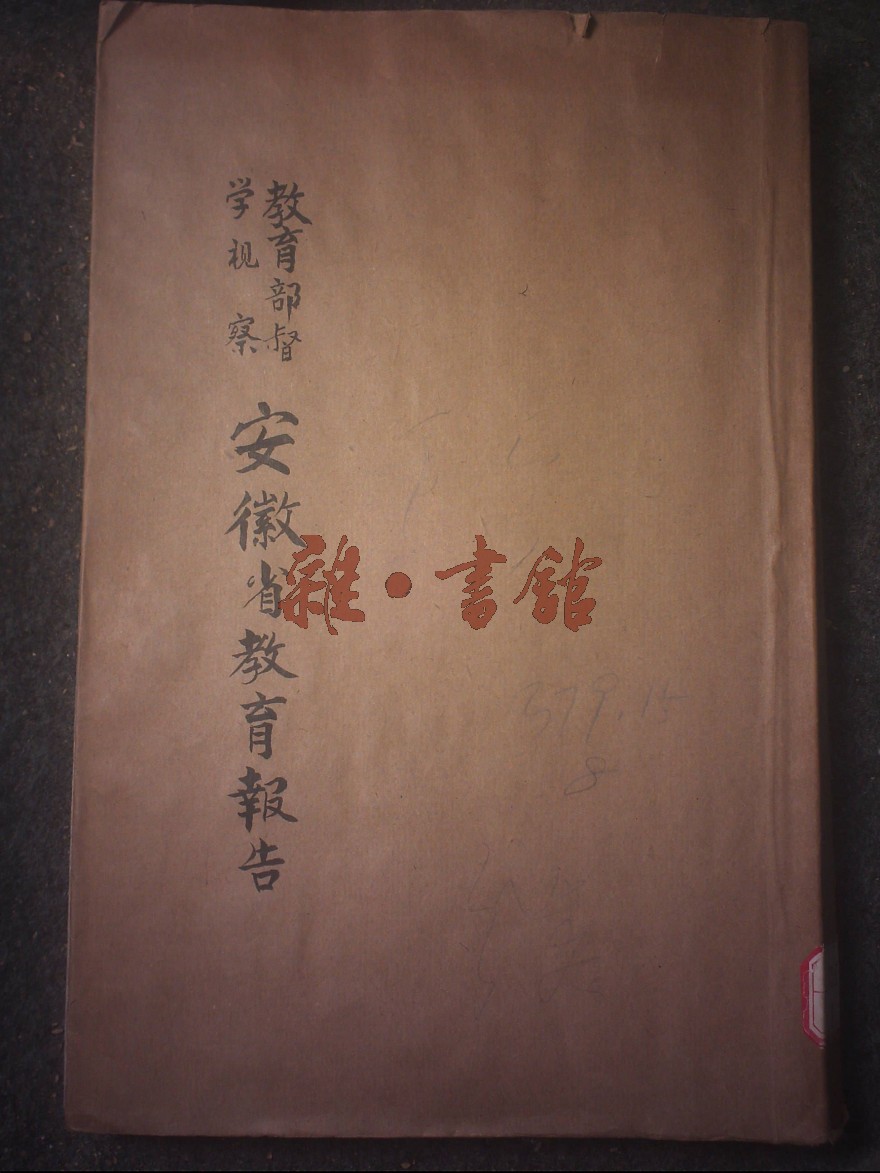 教育部督
学视察
安徽省教育報告
雜·書館
579.15
8